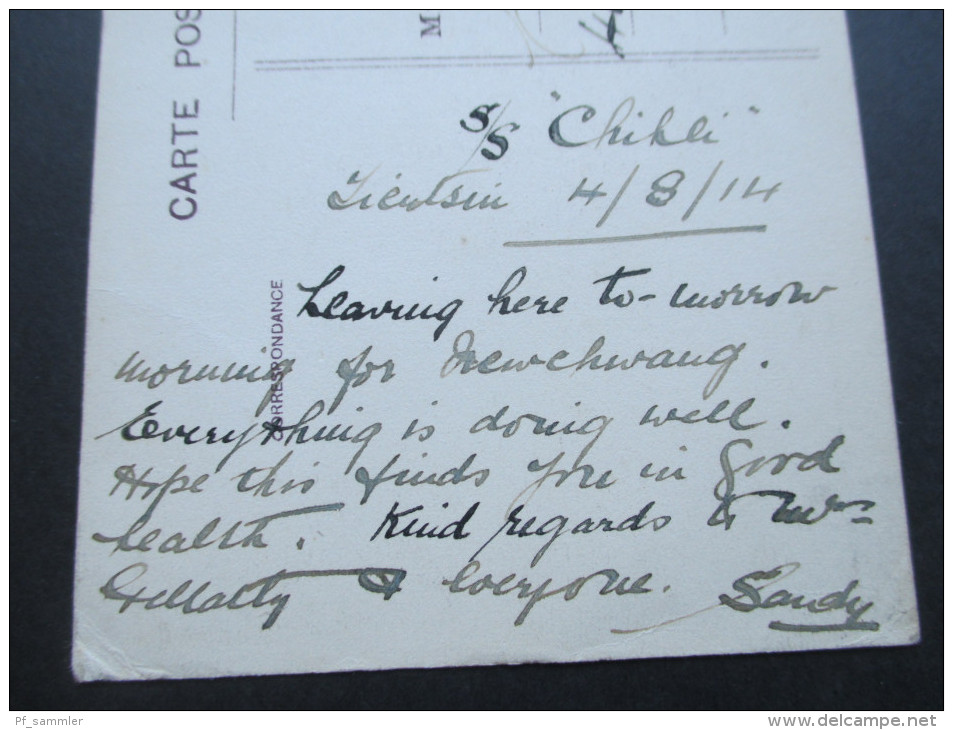 CARTE POS
M
S/S "Chihli"
Tientsin 4/8/14
CORRESPONDANCE
Leaving here to-morrow
morning for Newchwang.
Everything is doing well.
Hope this finds you in good
health. Kind regards to Mrs
& everyone. Sandy
Pf_sammler
www.delcampe.net